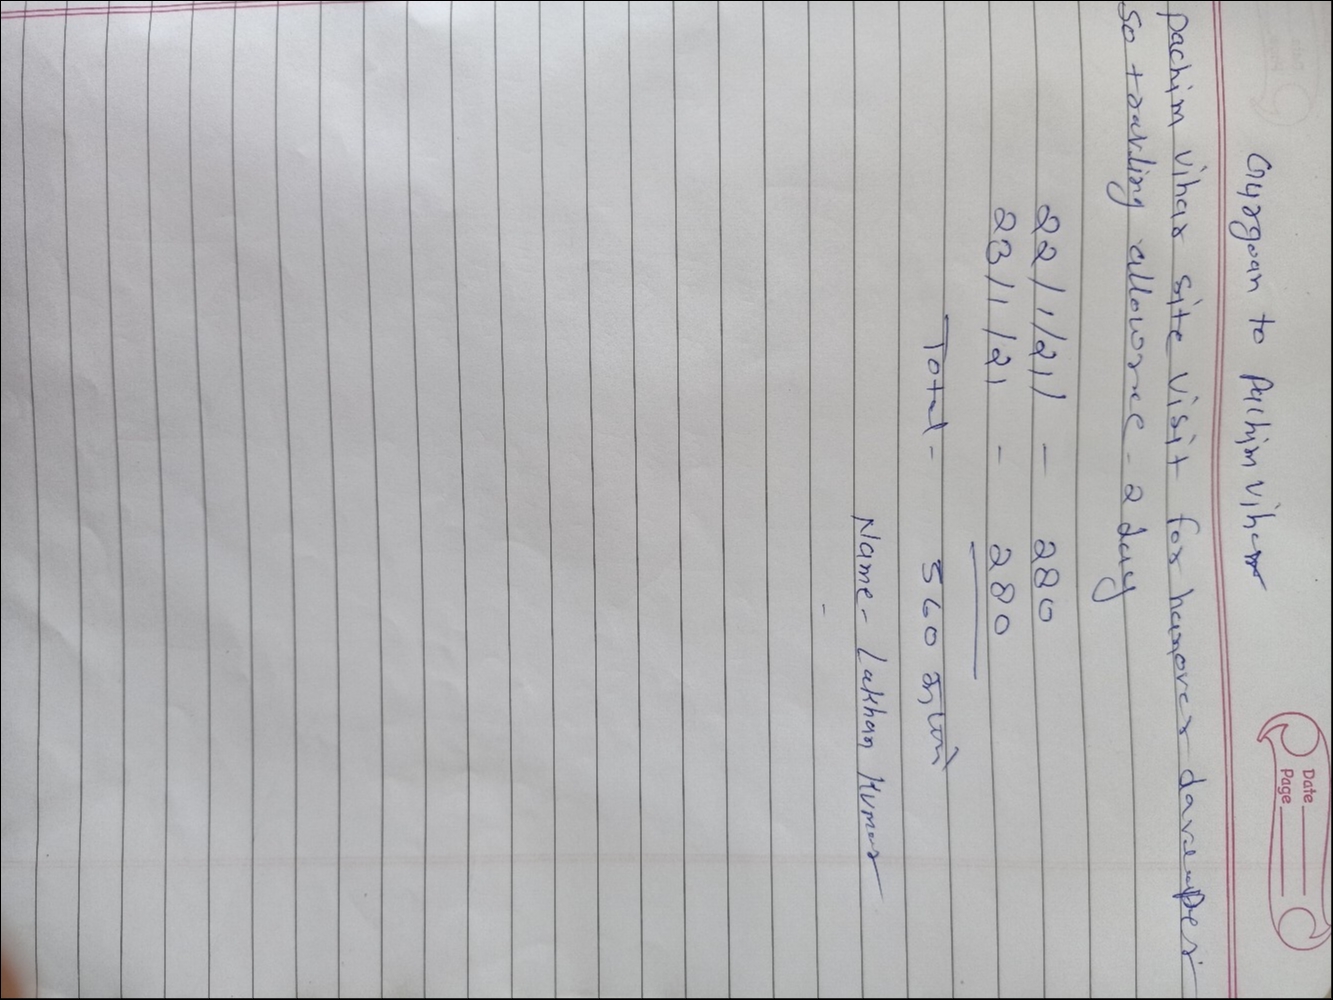 Date
Page
Gurgoan to Pachim vihar
pachim vihar site visit for hanover davdoper
So travling allowance - 2 day
22/1/21 - 280
23/1/21 - 280
Total - 560
Name - Lakhan Kumar